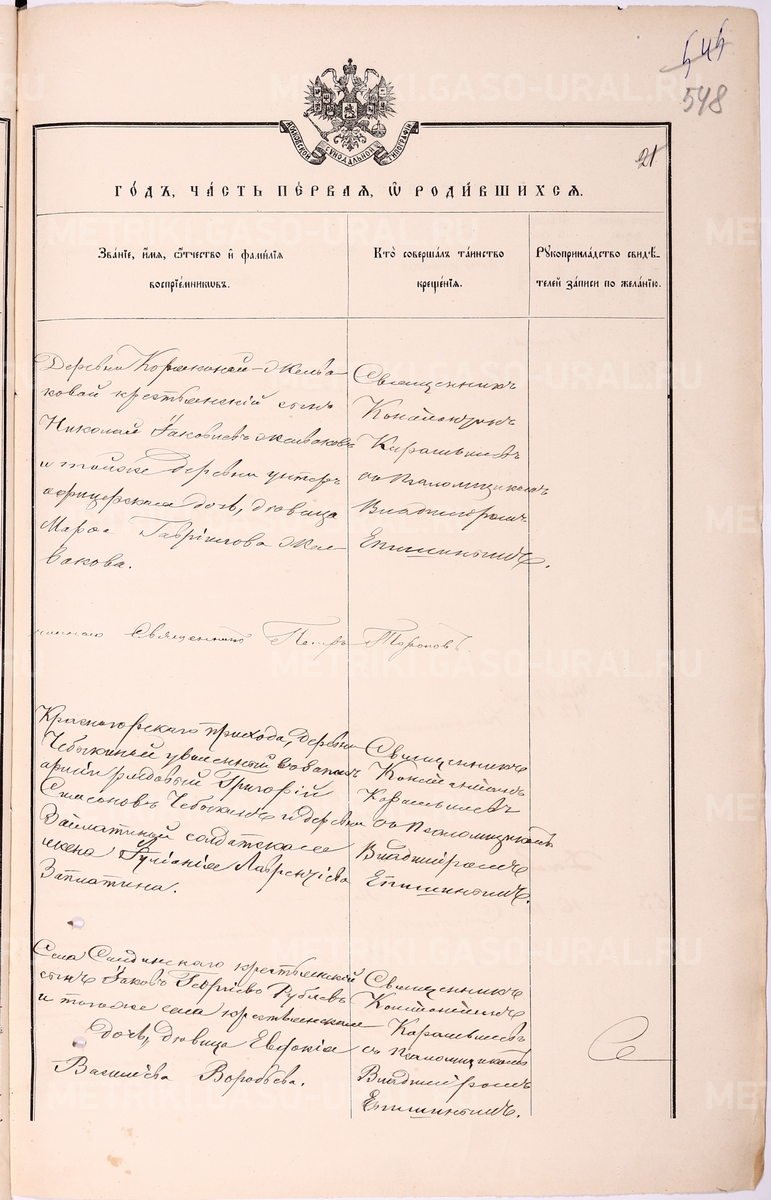 548
21
МОСКОВСКОЙ СѴНОДАЛЬНОЙ ТИПОГРАФІИ
ГОДЪ, ЧАСТЬ ПЕРВАЯ, Ѿ РОДИВШИХСЯ.
Званіе, имя, отчество и фамилія
воспріемниковъ.
Кто совершалъ таинство
крещенія.
Рукоприкладство свидѣ-
телей записи по желанію.
Деревни
крестьянскій сынъ
Николай Яковлевъ
и тойже деревни унтеръ
офицерская дочь, дѣвица
Марѳа Гавріилова
вакова.
Священникъ
Константинъ
съ псаломщикомъ
Владиміромъ
Епишинымъ.
Священникъ Петръ Тороповъ
Красногорскаго прихода, деревни
Чебыкиной уволенный въ запасъ
арміи рядовый Григорій
Симеоновъ Чебыкинъ и деревни
Заплатиной солдатская
жена Іуліанія Лаврентіева
Заплатина.
Священникъ
Константинъ
съ псаломщикомъ
Владиміромъ
Епишинымъ.
Села Салдинскаго крестьянскій
сынъ Яковъ Георгіевъ Рублевъ
и тогоже села крестьянская
дочь, дѣвица Евдокія
Васильева Воробьева.
Священникъ
Константинъ
съ псаломщикомъ
Владиміромъ
Епишинымъ.
METRIKI.GASO-URAL.RU